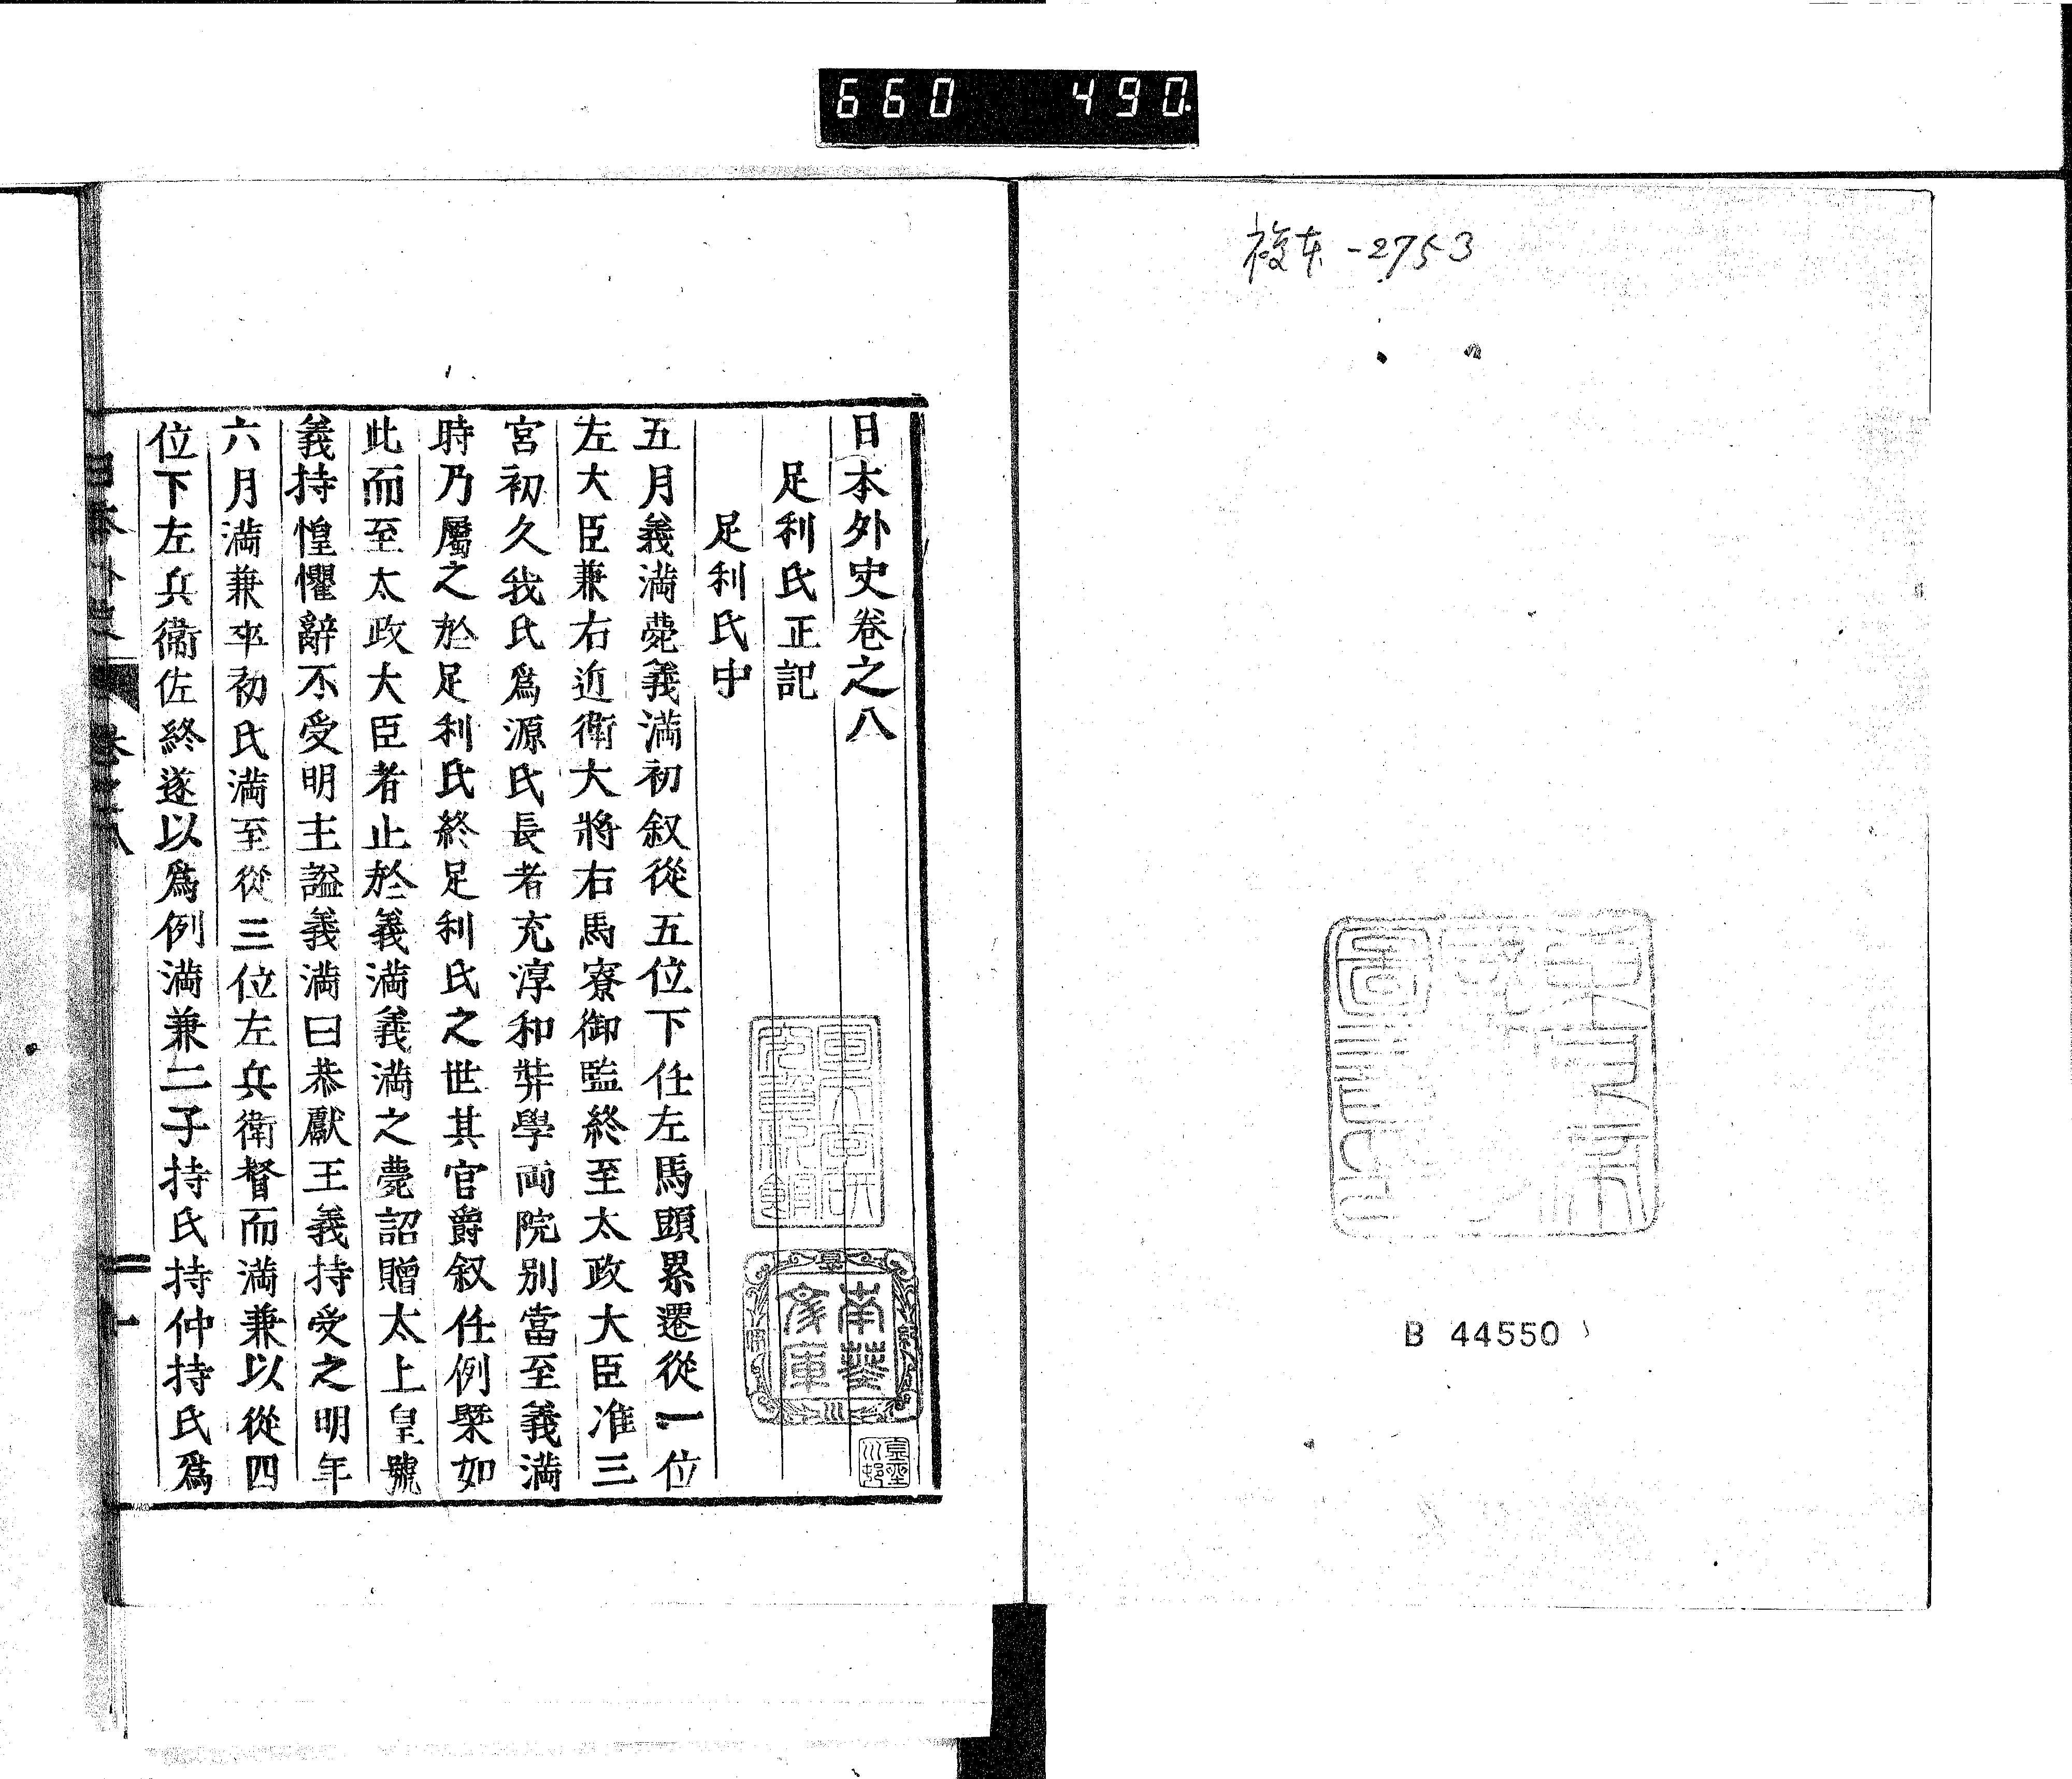 660 490.
複本-2753
B 44550
日本外史卷之八
足利氏正記
足利氏中
五月義満薨義満初叙從五位下任左馬頭累遷從一位
左大臣兼右近衛大將右馬寮御監終至太政大臣准三
宮初久我氏爲源氏長者充淳和弉學両院別當至義満
時乃屬之於足利氏終足利氏之世其官爵叙任例槩如
此而至太政大臣者止於義満義満之薨詔贈太上皇號
義持惶懼辭不受明主謚義満曰恭獻王義持受之明年
六月満兼卒初氏満至從三位左兵衛督而満兼以從四
位下左兵衛佐終遂以爲例満兼二子持氏持仲持氏爲
南葵
文庫